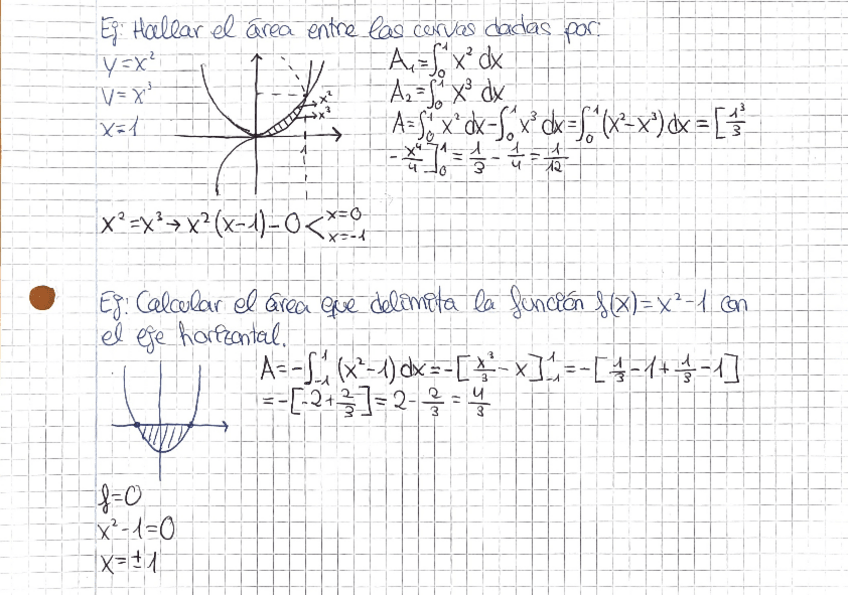 Ej: Hallar el área entre las curvas dadas por:
y=x²
y=x³
x=1
x²
x³
1
A₁=∫₀¹ x² dx
A₂=∫₀¹ x³ dx
A=∫₀¹ x² dx-∫₀¹ x³ dx=∫₀¹ (x²-x³) dx = [1³/3
- x⁴/4]₀¹ = 1/3 - 1/4 = 1/12
x²=x³→x²(x-1)-0< x=0
x=-1
Ej: Calcular el área que delimita la función f(x)=x²-1 con
el eje horizontal.
A=-∫₋₁¹ (x²-1) dx=-[x³/3 - x]₋₁¹ =-[1/3 -1+ 1/3 -1]
=-[-2+ 2/3]=2- 2/3 = 4/3
f=0
x²-1=0
x=±1